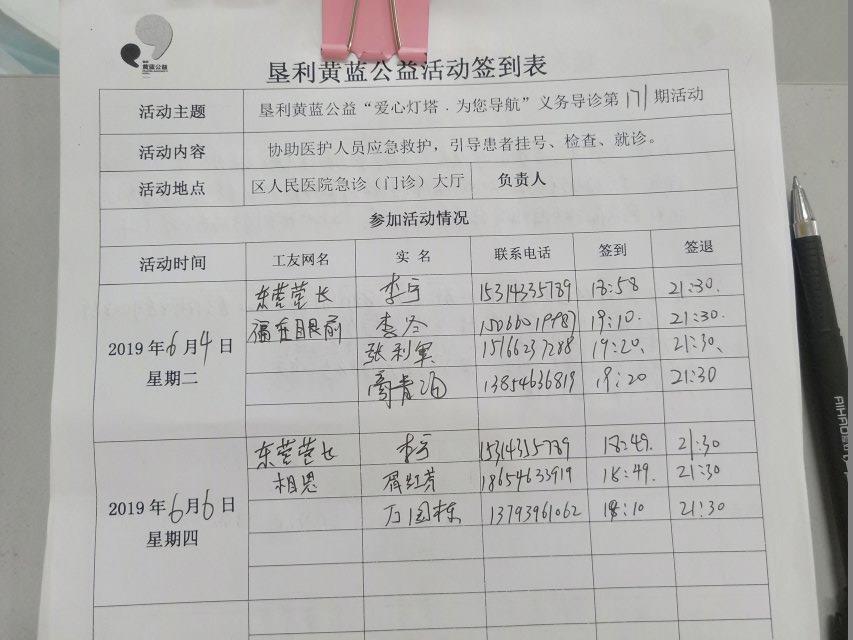 黄蓝公益
垦利黄蓝公益活动签到表
活动主题 垦利黄蓝公益“爱心灯塔．为您导航”义务导诊第171期活动
活动内容 协助医护人员应急救护，引导患者挂号、检查、就诊。
活动地点 区人民医院急诊（门诊）大厅 负责人
参加活动情况
活动时间 工友网名 实 名 联系电话 签到 签退
2019年6月4日
星期二
东营营长 15314335789 18:58 21:30.
福在眼前 李冬 15066019987 19:10. 21:30.
张利军 15166237288 19:20、 21:30、
13854636819 19:20 21:30
2019年6月6日
星期四
东营营长 15314335789 18:49. 21:30
相思 18654633919 18:49. 21:30
万国栋 13793961062 18:10 21:30
AIHAO